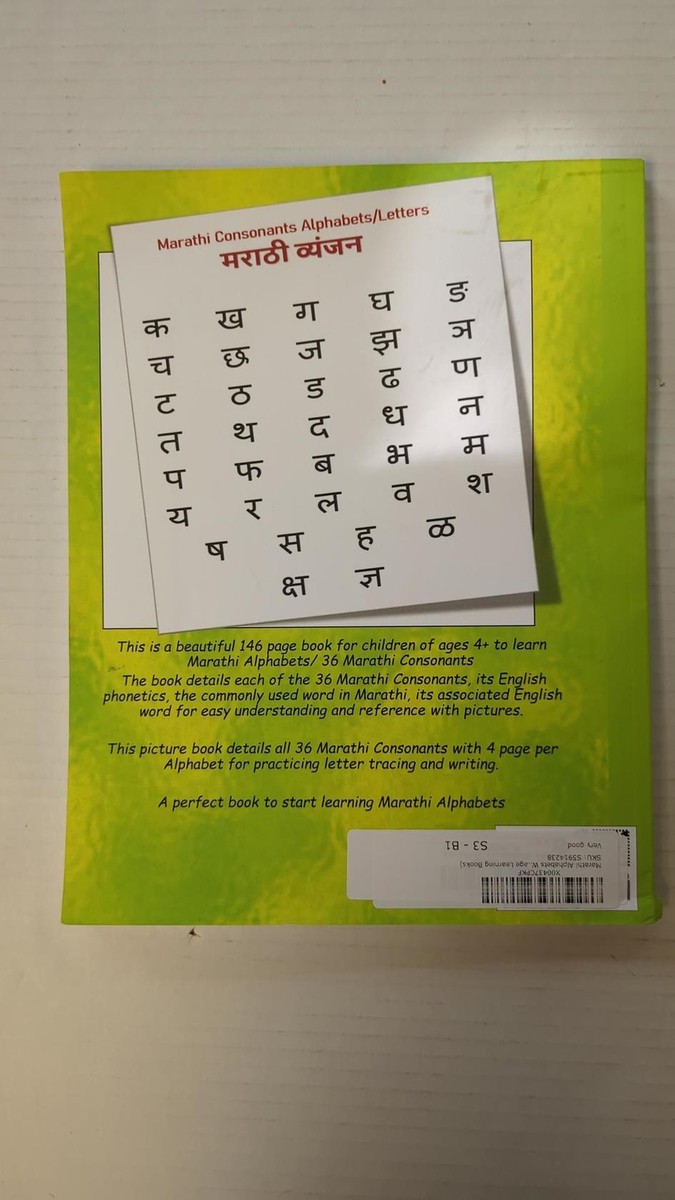 Marathi Consonants Alphabets/Letters
मराठी व्यंजन
क ख ग घ ङ
च छ ज झ ञ
ट ठ ड ढ ण
त थ द ध न
प फ ब भ म
य र ल व श
ष स ह ळ
क्ष ज्ञ
This is a beautiful 146 page book for children of ages 4+ to learn
Marathi Alphabets/ 36 Marathi Consonants
The book details each of the 36 Marathi Consonants, its English
phonetics, the commonly used word in Marathi, its associated English
word for easy understanding and reference with pictures.
This picture book details all 36 Marathi Consonants with 4 page per
Alphabet for practicing letter tracing and writing.
A perfect book to start learning Marathi Alphabets
X00437CPKF
Marathi Alphabets W...age Learning Books)
SKU: S5914238
Very good
S3 - B1